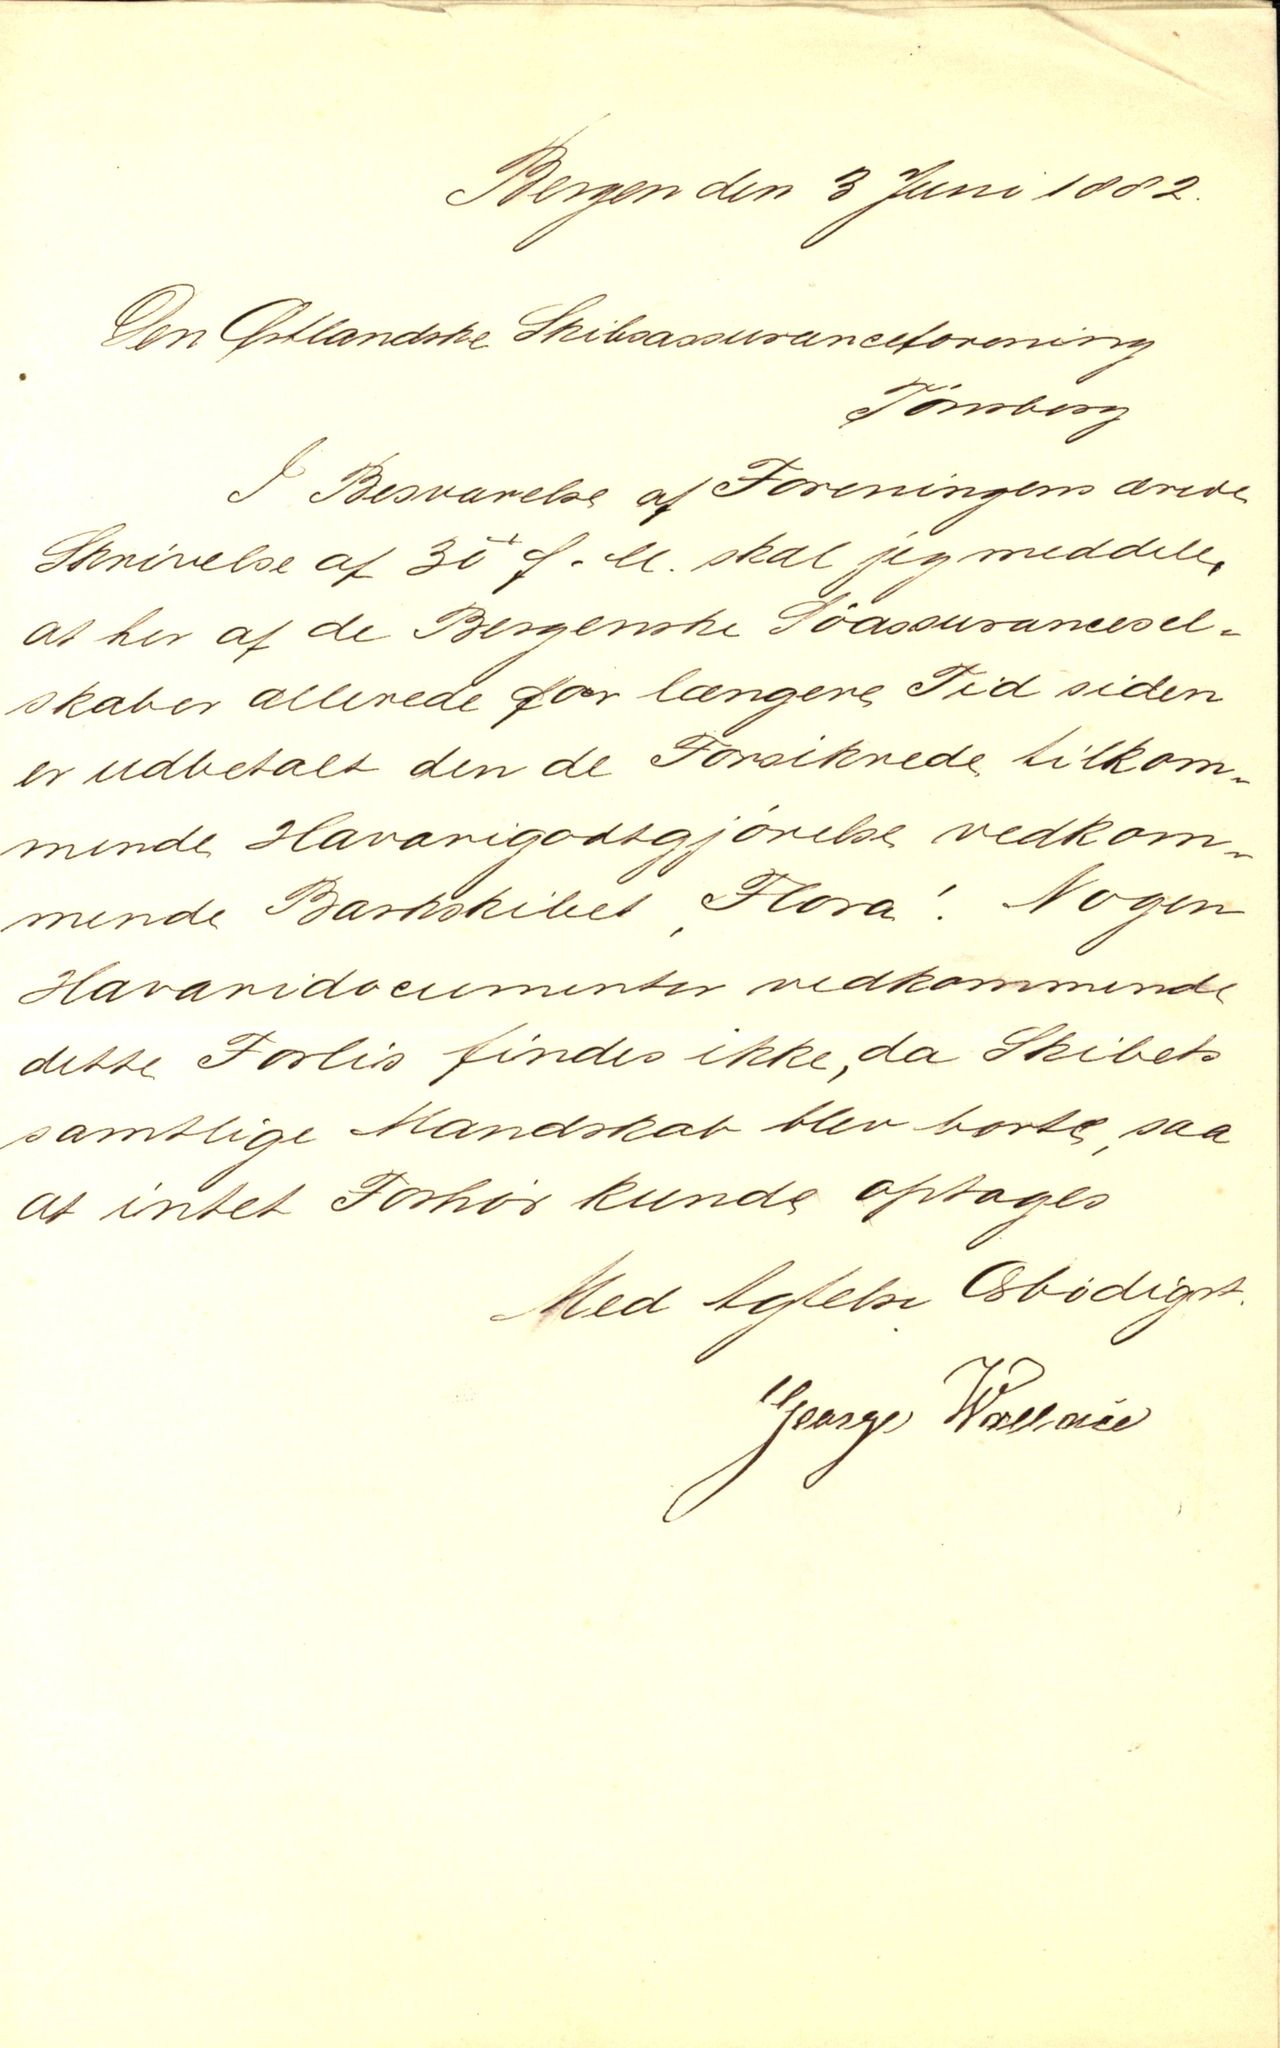 Bergen den 3 Juni 1882.
Den Østlandske Skibsassuranceforening
Tönsberg
I Besvarelse af Foreningens ærede
Skrivelse af 30' f. M. skal jeg meddele,
at her af de Bergenske Söassurancesel-
skaber allerede for længere Tid siden
er udbetalt den de Forsikrede tilkom-
mende Havarigodtgjörelse vedkom-
mende Barkskibet „Flora“. Nogen
Havaridocumenter vedkommende
dette Forlis findes ikke, da Skibets
samtlige Mandskab blev borte, saa
at intet Forhör kunde optages
Med Agtelse Ærbödigst.
George Wallace